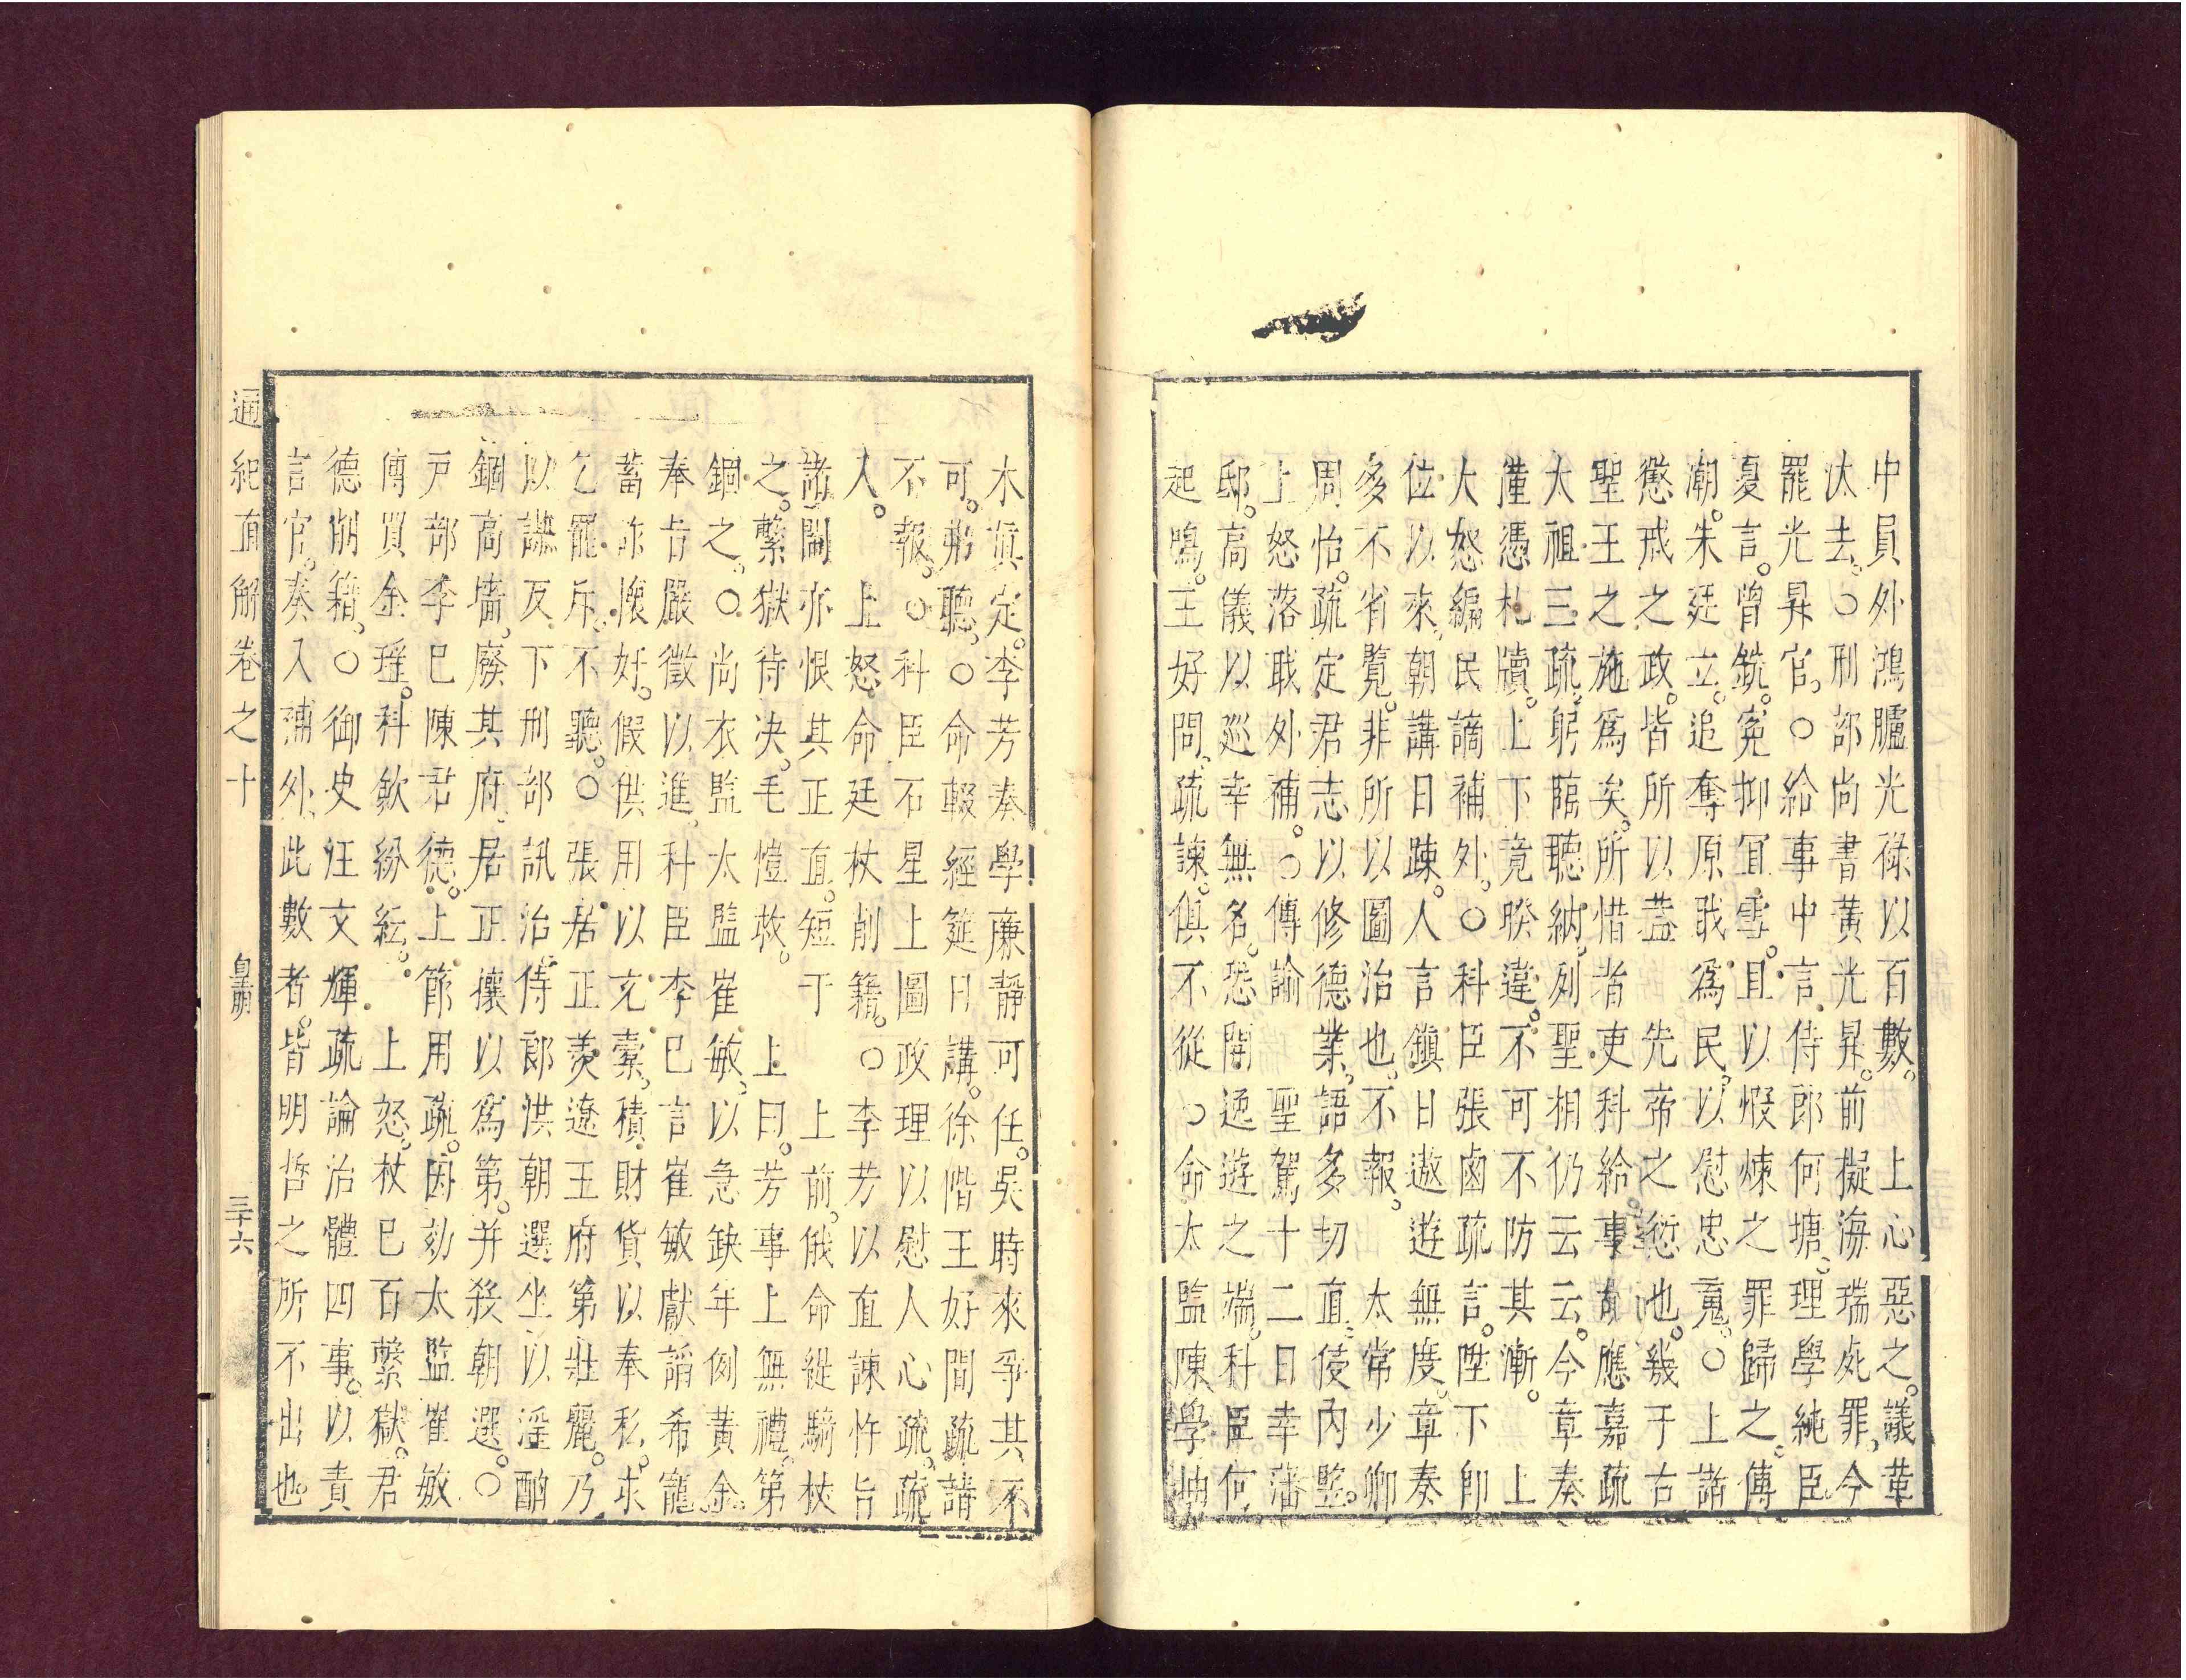 中員外鴻臚光祿以百數。　上心惡之。議革
汰去。○刑部尚書黃光昇。前擬海瑞死罪。今
罷光昇官。○給事中言。侍郎何塘。理學純臣
夏言。曾銑。冤抑冝雪。且以煆煉之罪歸之。傳
潮。朱廷立。追奪原職爲民。以慰忠䰟。○上諭
懲戒之政。皆所以蓋　先帝之愆也。幾于古
聖王之施爲矣。所惜者。吏科給事胡應嘉疏
太祖三疏。躬臨聽納。列聖相仍云云。今章奏
僅憑札牘。上下竟暌違。不可不防其漸。　上
大怒編民謫補外。○科臣張鹵疏言。陞下卽
位以來。朝講日踈。人言鎭日遨遊無度。章奏
多不省覽。非所以圖治也。不報。　太常少卿
周怡。疏定君志以修德業。語多切直。侵內監。
上怒落職外補。○傳諭　聖駕十二日幸藩
邸。高儀以巡幸無名。恐開逰遊之端。科臣何
起鳴。王好問。疏諫。俱不從　○命太監陳學坤
木眞定。李芳奏學廉靜可任。吳時來爭其不
可。弗聽。○命輟經筵日講。徐階王好問疏請
不報。○科臣石星上圖政理以慰人心疏。疏
入。　上怒。命廷杖削籍。○李芳以直諫忤旨
諸閹亦恨其正直。短于　上前。俄命縱騎杖
之。繫獄待决。毛愷救。　上曰。芳事上無禮。第
錮之。○尚衣監太監崔敏。以急缺年例黃金
奉旨嚴徵以進。科臣李巳言崔敏獻諂希寵
蓄詐懷奸。假供用以充槖。積財貨以奉私。求
乞罷斥。不聽。○張居正羨遼王府第壯麗。乃
以謀反下刑部訊治。侍郎洪朝選坐以淫酗
錮高墻。廢其府。居正攘以爲第。并殺朝選。○
戸部李巳陳君德。上節用疏。因劾太監崔敏
傅買金瑶。科歛紛紜。　上怒。杖巳百繫獄。君
德削籍。○御史汪文輝疏論治體四事。以責
言官。奏入補外。此數者。皆明哲之所不出也
通紀直解卷之十　皇明　三十六